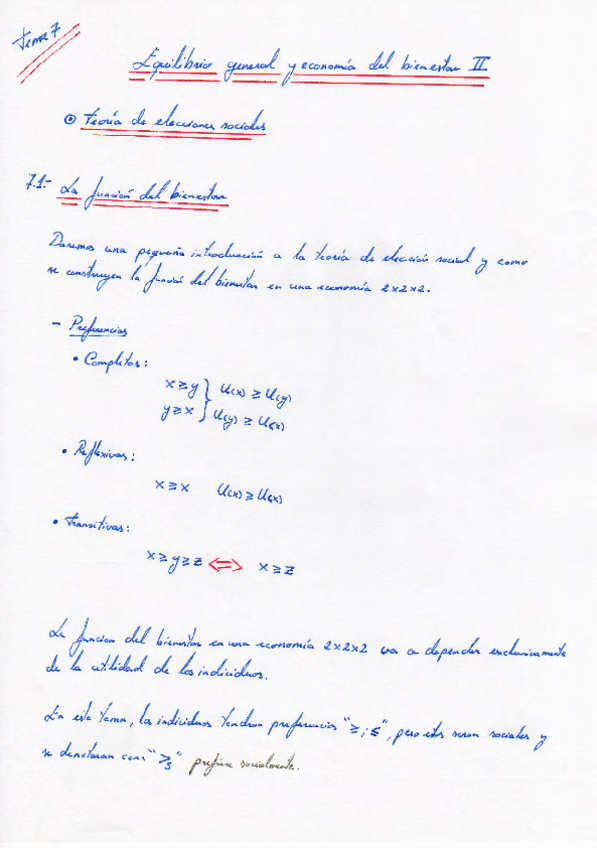 Tema 7
Equilibrio general y economía del bienestar II
⊙ Teoría de elecciones sociales
7.1.- La función del bienestar
Daremos una pequeña introducción a la teoría de elección social y como
se construyen la función del bienestar en una economía 2x2x2.
- Preferencias
• Completas:
x ≥ y } U(x) ≥ U(y)
y ≥ x } U(y) ≥ U(x)
• Reflexivas:
x ≥ x U(x) ≥ U(x)
• Transitivas:
x ≥ y ≥ z <=> x ≥ z
La funcion del bienestar en una economía 2x2x2 va a depender exclusivamente
de la utilidad de los individuos.
En este tema, los individuos tendran preferencias "≥ ; ≤", pero estas seran sociales y
se denotaran como "≥s" prefiere socialmente.